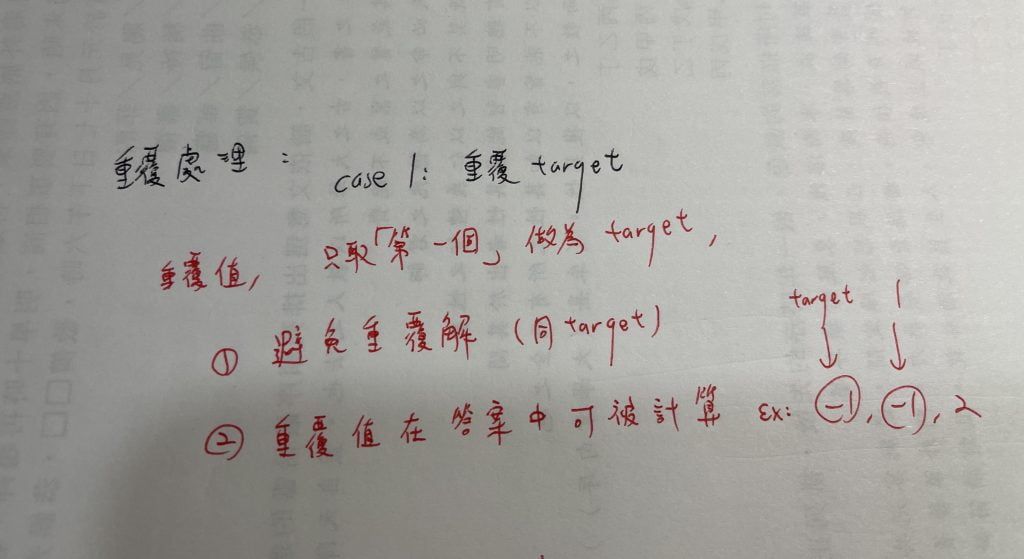 重覆處理： case 1: 重覆 target
重覆值, 只取「第一個」做為 target,
target 1
① 避免重覆解 (同 target)
② 重覆值在答案中可被計算 Ex: -1, -1, 2